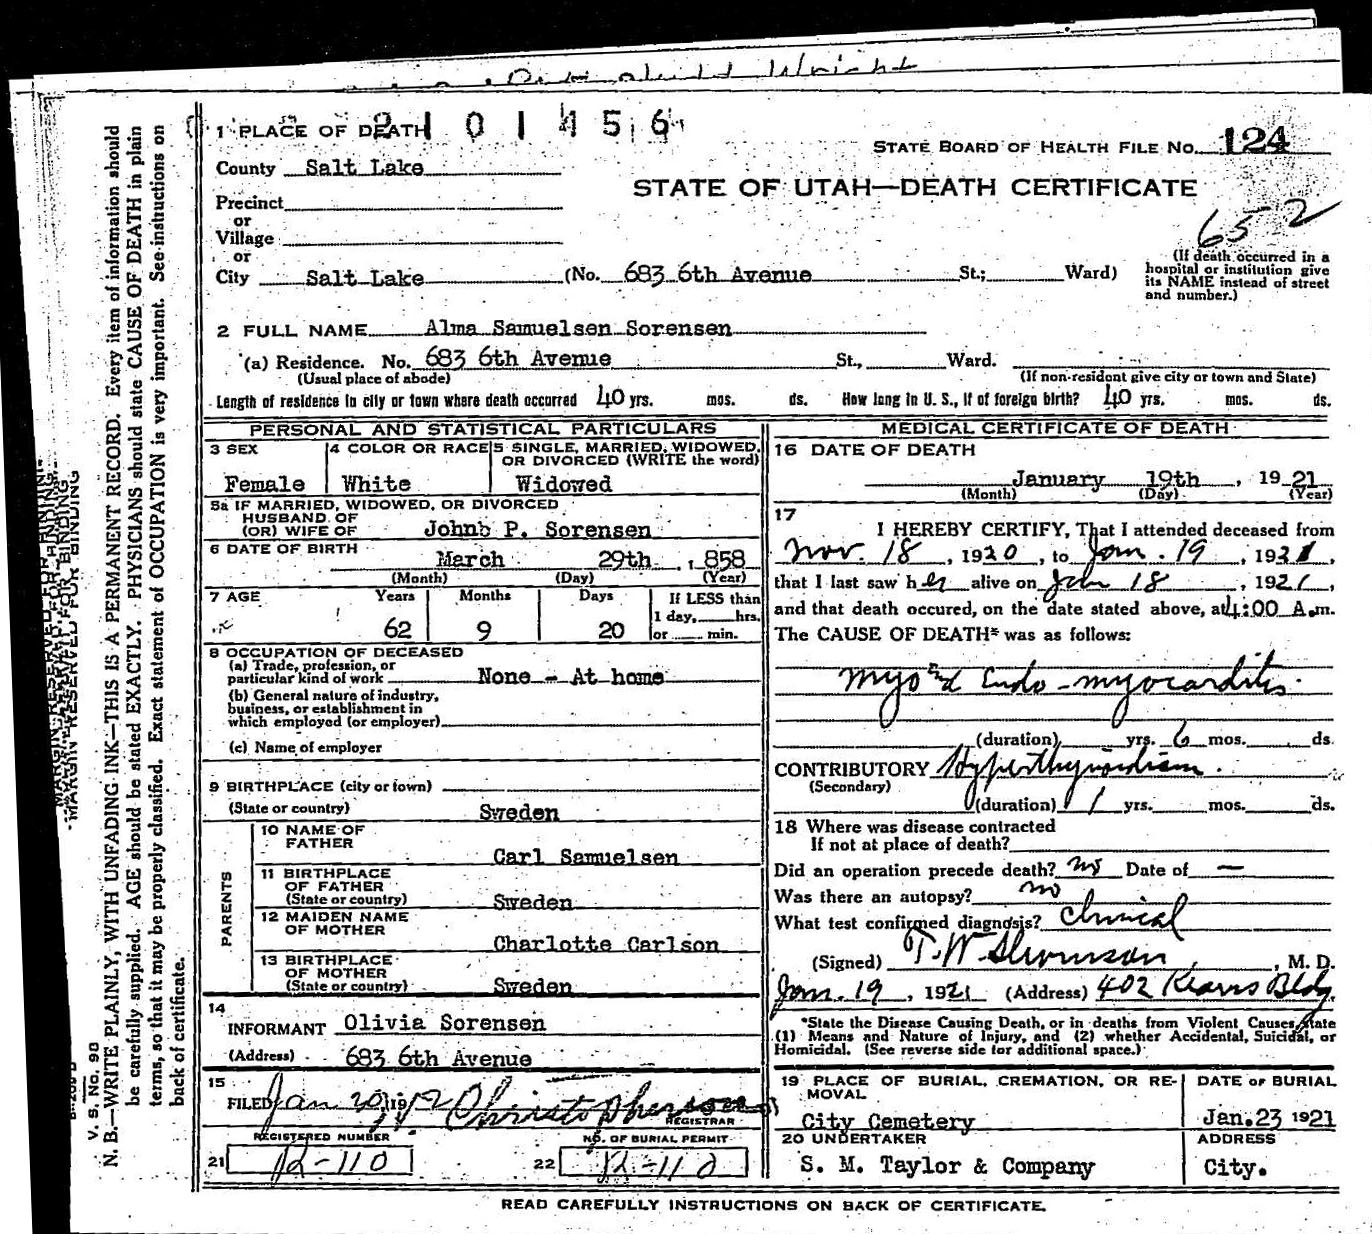 2101456
1 PLACE OF DEATH
STATE BOARD OF HEALTH FILE NO. 124
County Salt Lake
STATE OF UTAH—DEATH CERTIFICATE
Precinct
or
652
Village
or
City Salt Lake (No. 683 6th Avenue St.; Ward)
(If death occurred in a
hospital or institution give
its NAME instead of street
and number.)
2 FULL NAME Alma Samuelsen Sorensen
(a) Residence. No. 683 6th Avenue St., Ward.
(Usual place of abode) (If non-resident give city or town and State)
Length of residence in city or town where death occurred 40 yrs. mos. ds. How long in U. S., if of foreign birth? 40 yrs. mos. ds.
PERSONAL AND STATISTICAL PARTICULARS
3 SEX
Female
4 COLOR OR RACE
White
5 SINGLE, MARRIED, WIDOWED,
OR DIVORCED (WRITE the word)
Widowed
5a IF MARRIED, WIDOWED, OR DIVORCED
HUSBAND OF
(OR) WIFE OF Johnb P. Sorensen
6 DATE OF BIRTH
March 29th , 858
(Month) (Day) (Year)
7 AGE Years Months Days If LESS than
1 day, hrs.
62 9 20 or min.
8 OCCUPATION OF DECEASED
(a) Trade, profession, or
particular kind of work None - At home
(b) General nature of industry,
business, or establishment in
which employed (or employer)
(c) Name of employer
9 BIRTHPLACE (city or town)
(State or country) Sweden
PARENTS
10 NAME OF
FATHER
Carl Samuelsen
11 BIRTHPLACE
OF FATHER
(State or country) Sweden
12 MAIDEN NAME
OF MOTHER
Charlotte Carlson
13 BIRTHPLACE
OF MOTHER
(State or country) Sweden
14
INFORMANT Olivia Sorensen
(Address) 683 6th Avenue
15
FILED Jan 20, 19 Christophersen
REGISTRAR
REGISTERED NUMBER NO. OF BURIAL PERMIT
21 12-110 22 12-110
MEDICAL CERTIFICATE OF DEATH
16 DATE OF DEATH
January 19th , 19 21
(Month) (Day) (Year)
17
I HEREBY CERTIFY, That I attended deceased from
Nov. 18 , 1920 , to Jan. 19 , 1921,
that I last saw her alive on Jan 18 , 1921,
and that death occured, on the date stated above, at 4:00 A.m.
The CAUSE OF DEATH* was as follows:
Myo and Endo-myocarditis.
(duration) yrs. 6 mos. ds.
CONTRIBUTORY Hyperthyroidism.
(Secondary)
(duration) 1 yrs. mos. ds.
18 Where was disease contracted
If not at place of death?
Did an operation precede death? no Date of —
Was there an autopsy? no
What test confirmed diagnosis? Clinical
(Signed) T. W. , M. D.
Jan. 19 , 1921 (Address) 402 Kearns Bldg.
*State the Disease Causing Death, or in deaths from Violent Causes, state
(1) Means and Nature of Injury, and (2) whether Accidental, Suicidal, or
Homicidal. (See reverse side for additional space.)
19 PLACE OF BURIAL, CREMATION, OR RE-
MOVAL
City Cemetery
DATE OF BURIAL
Jan. 23 1921
20 UNDERTAKER
S. M. Taylor & Company
ADDRESS
City.
READ CAREFULLY INSTRUCTIONS ON BACK OF CERTIFICATE.
MARGIN RESERVED FOR BINDING
V. S. No. 98
N. B.—WRITE PLAINLY, WITH UNFADING INK—THIS IS A PERMANENT RECORD. Every item of information should
be carefully supplied. AGE should be stated EXACTLY. PHYSICIANS should state CAUSE OF DEATH in plain
terms, so that it may be properly classified. Exact statement of OCCUPATION is very important. See instructions on
back of certificate.